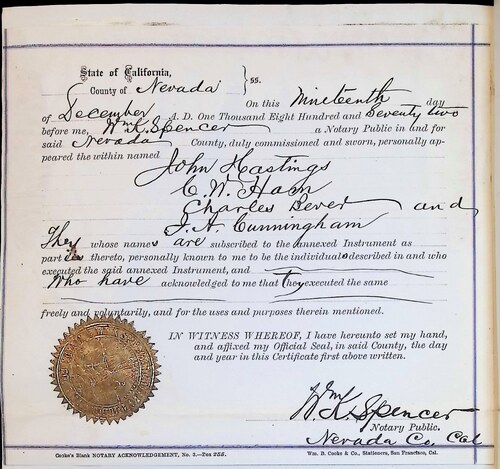 State of California,
County of Nevada } ss.
On this Nineteenth day
of December A. D. One Thousand Eight Hundred and Seventy two
before me, Wm K. Spencer a Notary Public in and for
said Nevada County, duly commissioned and sworn, personally ap-
peared the within named John Hastings
C. W. Ham
Charles Bever and
J. A. Cunningham
They whose names are subscribed to the annexed Instrument as
parties thereto, personally known to me to be the individuals described in and who
executed the said annexed Instrument, and
Who have acknowledged to me that they executed the same
freely and voluntarily, and for the uses and purposes therein mentioned.
IN WITNESS WHEREOF, I have hereunto set my hand,
and affixed my Official Seal, in said County, the day
and year in this Certificate first above written.
Wm K. Spencer
Notary Public.
Nevada Co. Cal
Cooke's Blank NOTARY ACKNOWLEDGEMENT, No. 3.—Fos 255.
Wm. B. Cooke & Co., Stationers, San Francisco, Cal.